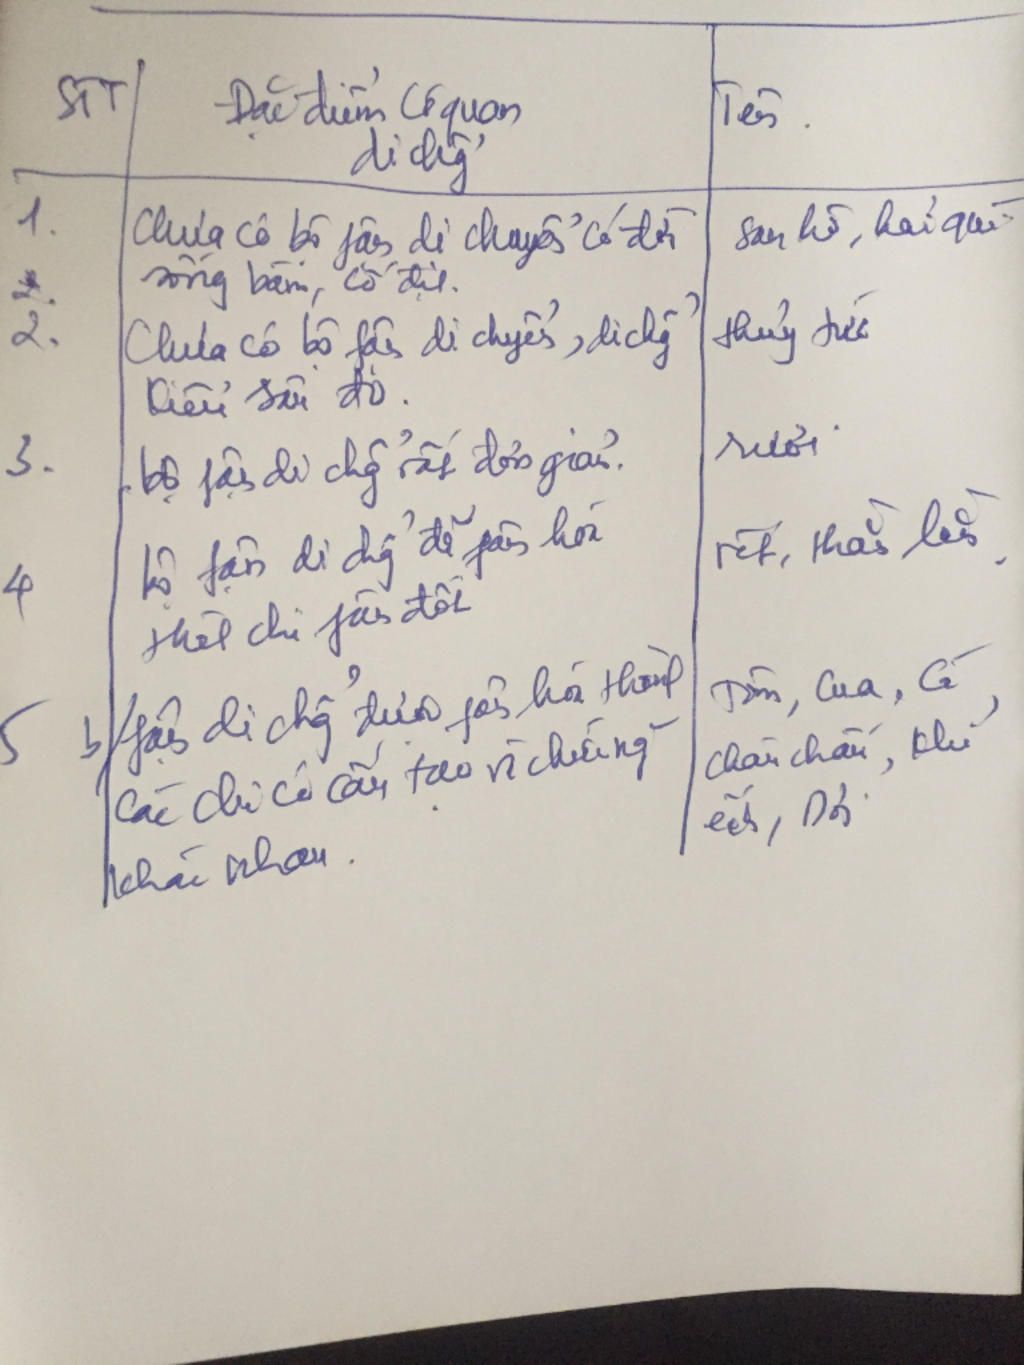 STT Đặc điểm cơ quan Tên.
di chể
1. Chưa có bộ fận di chuyển có đời san hô, hải quì
sống bám, cố địt.
2. Chưa có bộ fận di chyển, di chể thủy tức
kiểu sâu đo.
3. bộ fận di chể rất đơn giản. rươi
4 bộ fận di chể đã fân hóa rết, thằn lằn,
thàl chi fân đốt
5 b/fận di chể được fân hóa thành Tôm, cua, cá,
các chi có cấu tạo và chức năng châu chấu, khỉ
khác nhau. ếch, Dơi